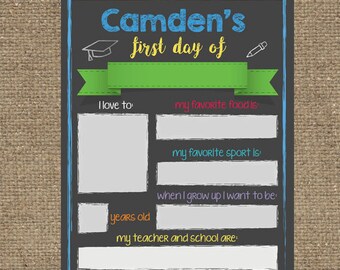 Camden's
first day of
I love to:
my favorite food is:
my favorite sport is:
when I grow up I want to be:
years old
my teacher and school are: